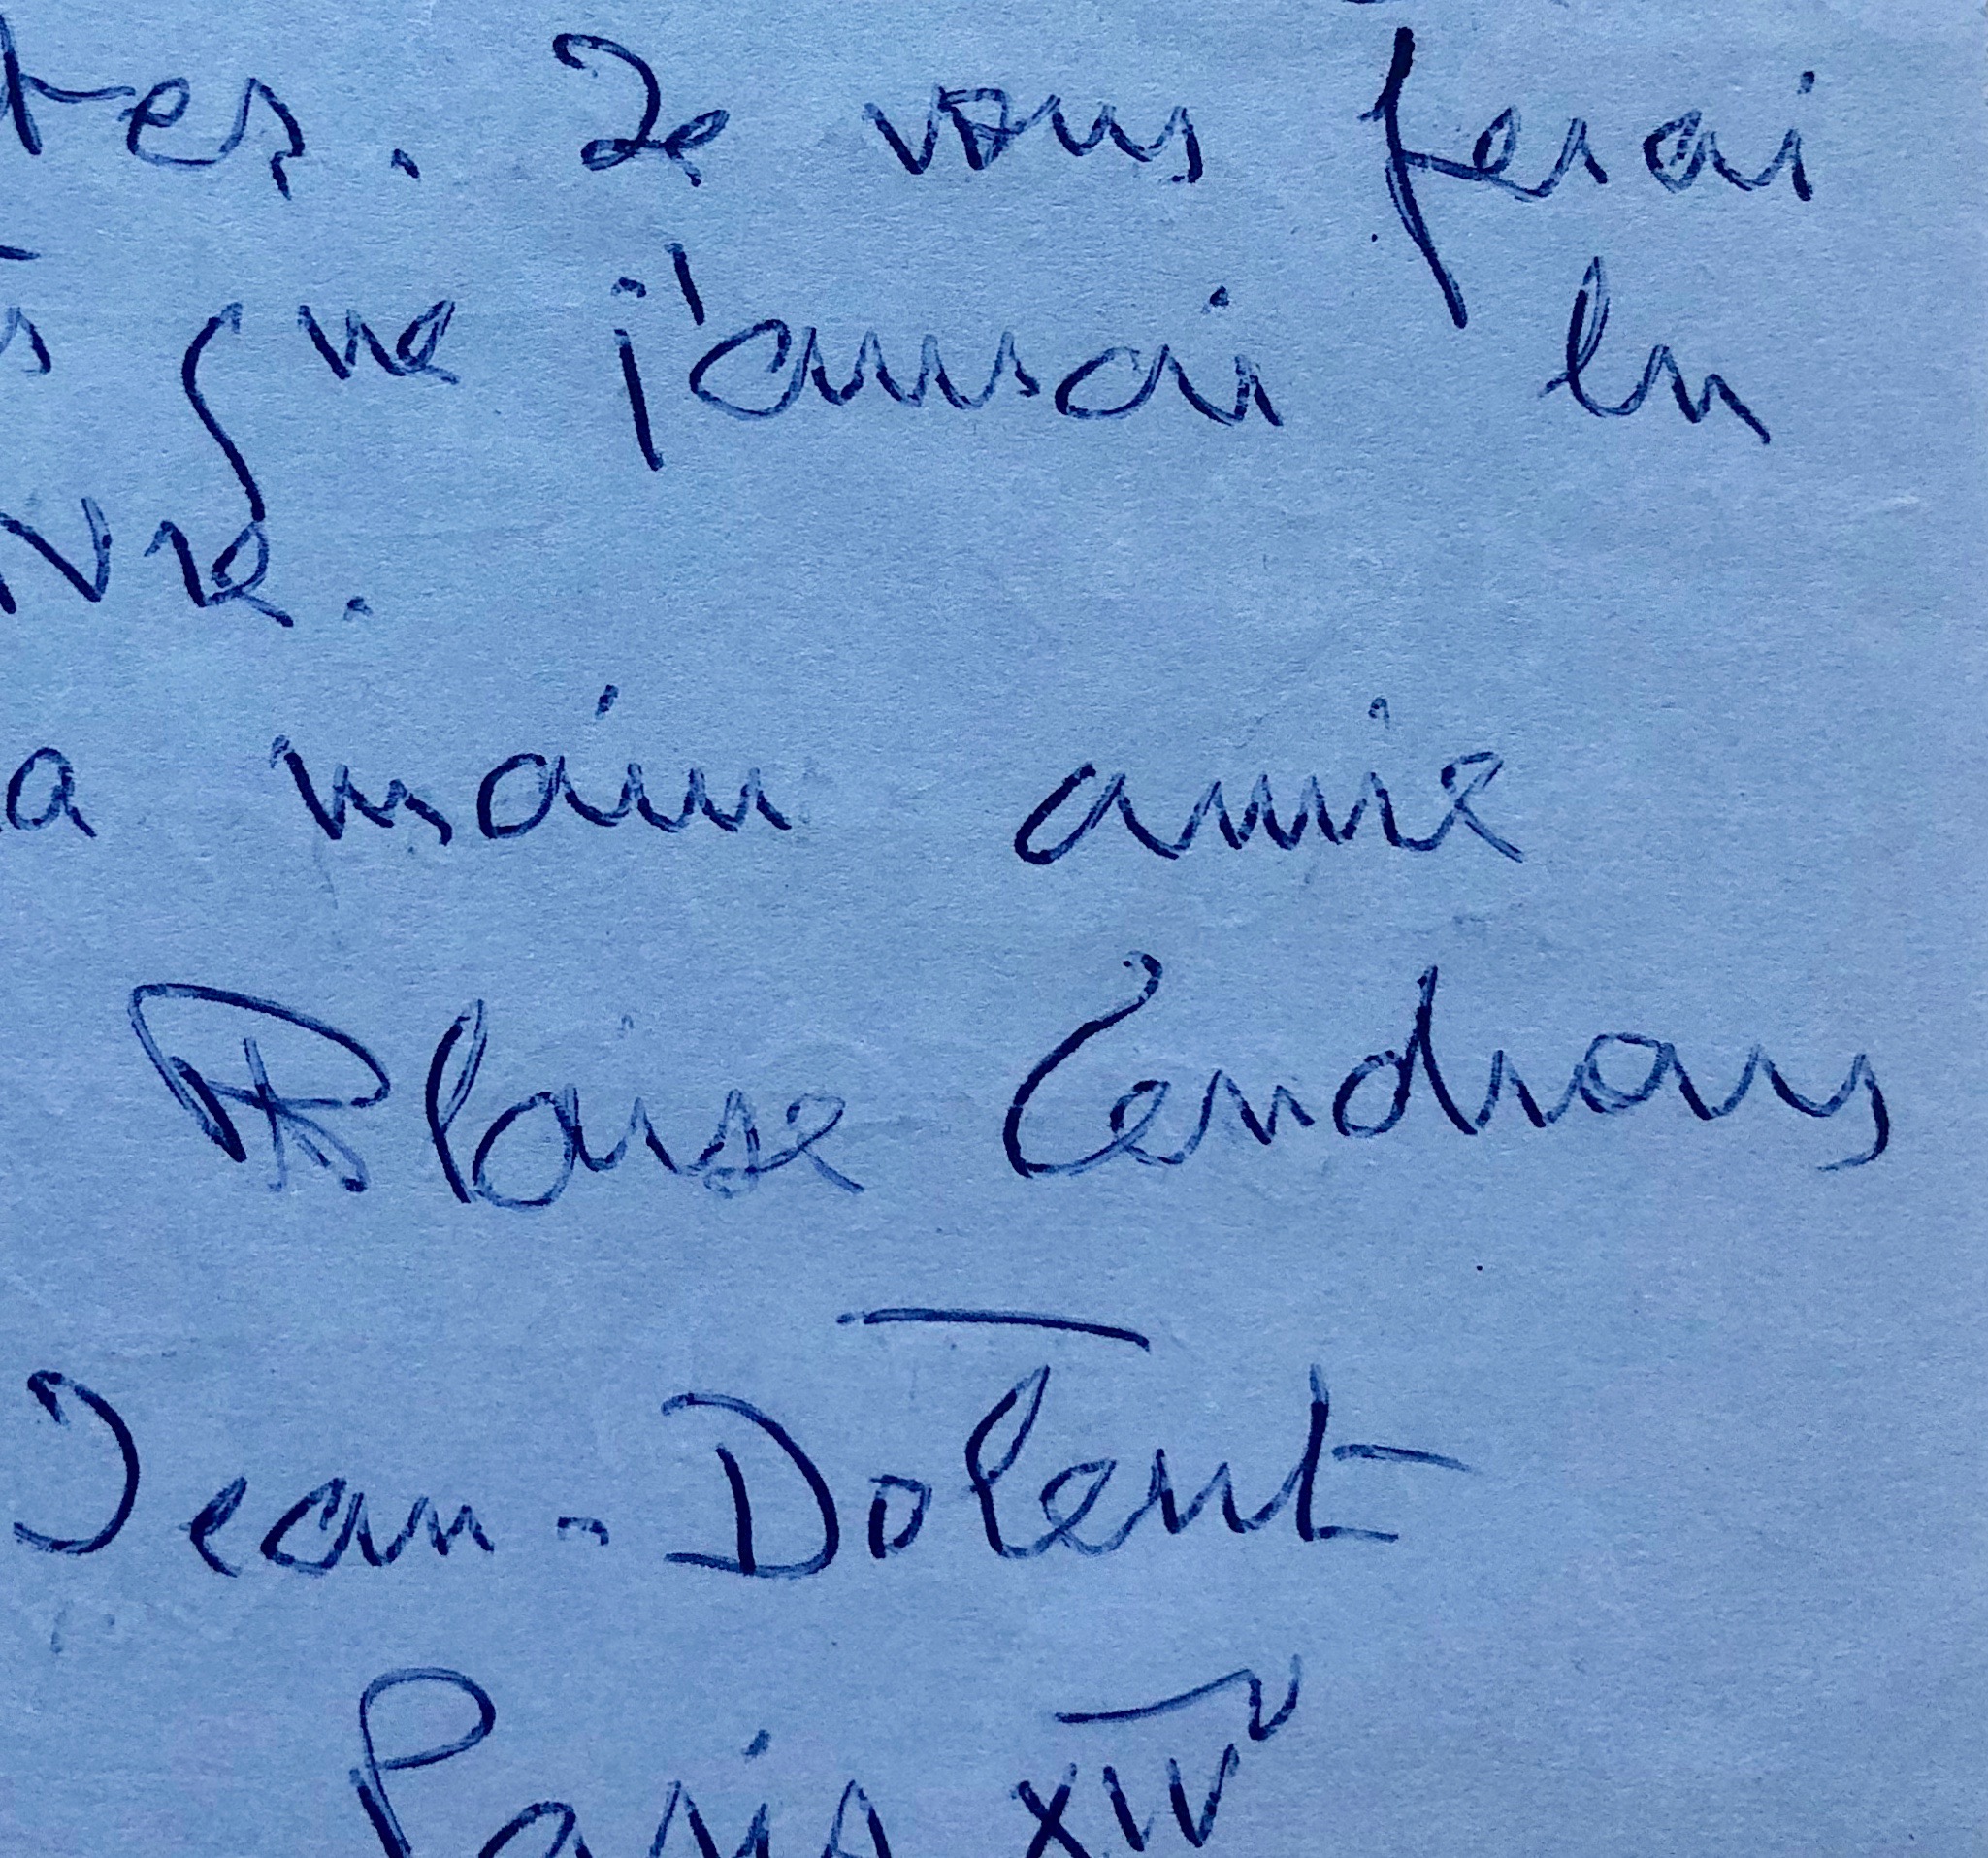 tes. Je vous ferai
s que j'aurai lu
vre.
a main amie
Blaise Cendrars
Jean-Dolent
Paris XIV